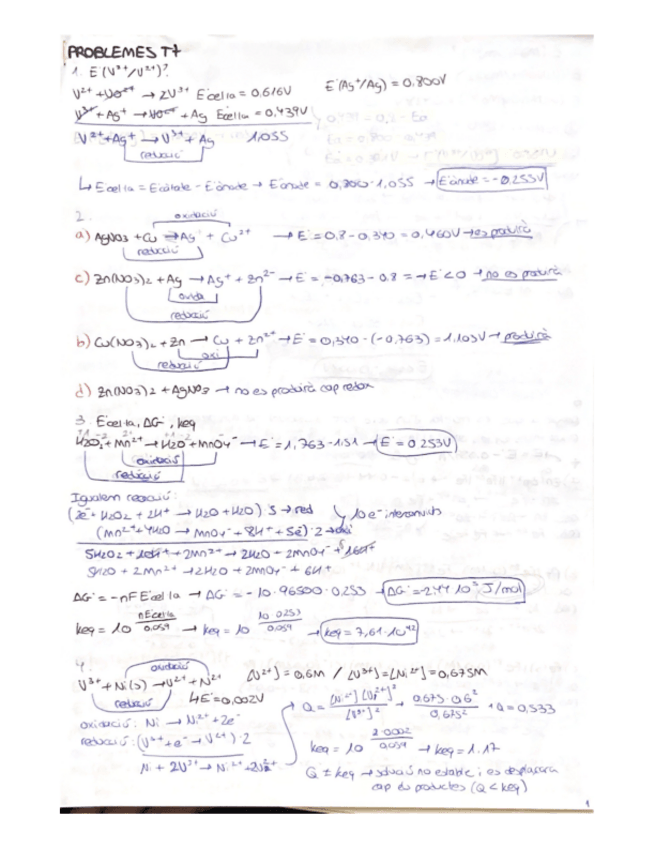 PROBLEMES T7
1. E°(V³⁺/V²⁺)?
E°(Ag⁺/Ag) = 0,800V
V²⁺ + VO²⁺ → 2V³⁺ E°cel·la = 0,616V
V³⁺ + Ag⁺ → VO²⁺ + Ag E°cel·la = 0,439V
V²⁺ + Ag⁺ → V³⁺ + Ag 1,055
reducció
↳ E°cel·la = E°càtode - E°ànode → E°ànode = 0,800 - 1,055 → E°ànode = -0.253V
2.
oxidació
a) AgNO3 + Cu → Ag + Cu²⁺ → E° = 0,8 - 0,340 = 0,460V → es produirà
reducció
c) Zn(NO3)2 + Ag → Ag⁺ + Zn²⁻ → E° = -0,763 - 0.8 = → E° < 0 → no es produirà
oxida
reducció
b) Cu(NO3)2 + Zn → Cu + Zn²⁺ → E° = 0,340 - (-0,763) = 1.103V → produirà
oxi
reducció
d) Zn(NO3)2 + AgNO3 → no es produirà cap redox
3. E°cel·la, ΔG°, Keq
H2O2 + Mn²⁺ → H2O + MnO4⁻ → E° = 1,763 - 1.51 → E° = 0.253V
oxidació
reducció
Igualem reacció:
(2e⁻ + H2O2 + 2H⁺ → H2O + H2O) · 5 → red
10 e⁻ intercanviats
(Mn²⁺ + 4H2O → MnO4⁻ + 8H⁺ + 5e⁻) · 2 → oxi
5H2O2 + 10H⁺ + 2Mn²⁺ → 2H2O + 2MnO4⁻ + 16H⁺
+ 2Mn²⁺ → 2H2O + 2MnO4⁻ + 6H⁺
ΔG° = -nFE°cel·la → ΔG° = -10 · 96500 · 0.253 → ΔG° = -2.44 10⁵ J/mol
Keq = 10^(nE°cel·la/0,059) → Keq = 10^(10·0,253/0,059) → Keq = 7,61·10⁴²
4.
oxidació
V³⁺ + Ni(s) → V²⁺ + Ni²⁺
[V²⁺] = 0,6M / [V³⁺] = [Ni²⁺] = 0,675M
reducció
↳ E° = 0,002V
Q = [Ni²⁺][V²⁺]²/[V³⁺]² → 0.675·0,6²/0,675² → Q = 0,533
oxidació: Ni → Ni²⁺ + 2e⁻
reducció: (V³⁺ + e⁻ → V²⁺) · 2
Keq = 10^(2·0.002/0,059) → Keq = 1.17
Ni + 2V³⁺ → Ni²⁺ + 2V²⁺
Q ≠ Keq → solució no estable i es desplaçarà
cap els productes (Q < Keq)
1